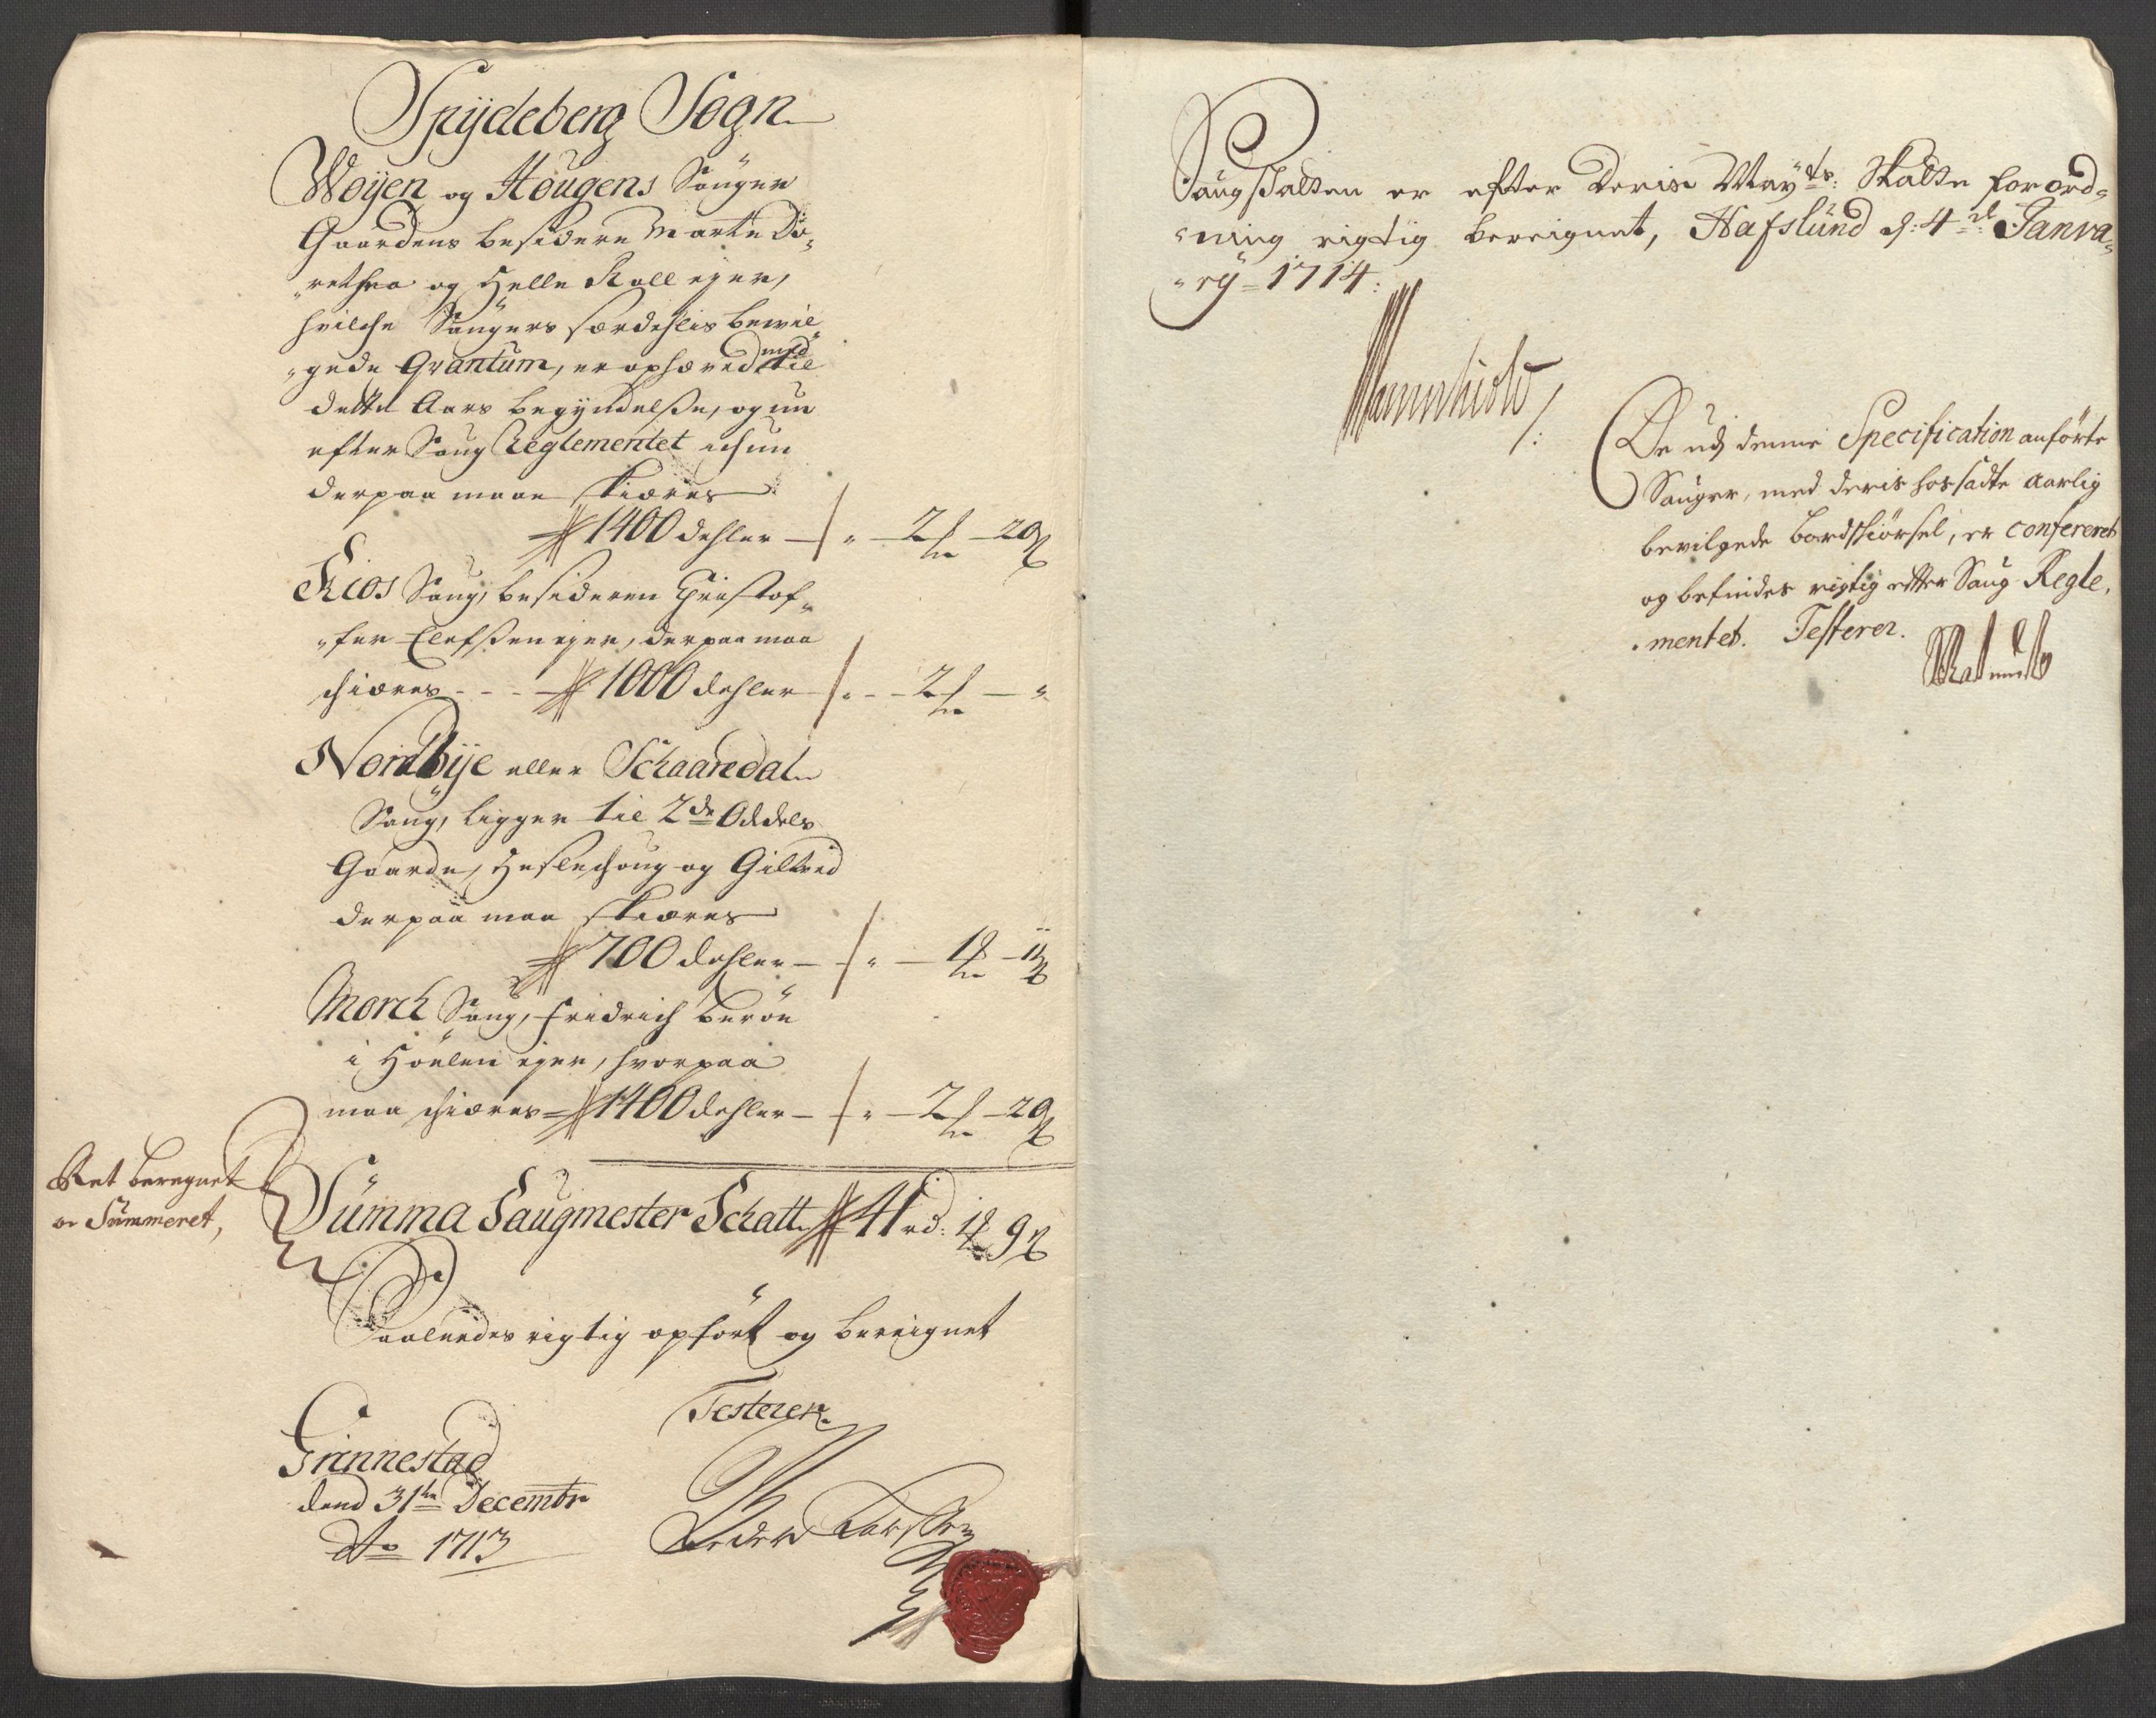 Spydeberg Sogn
Woÿen og Hougens Sauger
Gaardens besidere Marte Do-
rethea og Helle Roll ejer,
hvilche Saugers særdehlis bevil-
gede Qvantum, er ophæved med
dette Aars begyndelse, og nu
efter Saug Reglementet ichun
derpaa maae skiæres
1400 dehler - 2 - 20
Kios Saug, besideren Christof-
fer Elefssen ejer, derpaa maa
schiæres - - - 1000 dehler - - 2 - "
Nordbÿe eller Schaaredal
Saug, ligger til 2de Oddels
Gaarde, Heslechoug og Giltvid
derpaa maa skiæres
700 dehler - 1 -
Morck Saug, Fridrich
i Höelen ejer, hvorpaa
maa schiæres 1400 dehler - 2 - 20
Ret beregnet
or Summeret,
Summa Saugmester Schatt 41 rd: 1 9
Saaledes rigtig opfört og bereignet
Testerer
Grinnestad
dend 31te Decembr
Ao 1713
Peder Larssen
Saugskatten er efter Deris Mayts: Skatte forord-
ning rigtig bereignet, Hafslund d: 4de Janva-
ry 1714:
De udj denne Specification anförte
Sauger, med deris hossadte aarlig
bevilgede bordskiörsel, er confereret
og befindes rigtig etter Saug Regle-
mentet. Testerer.